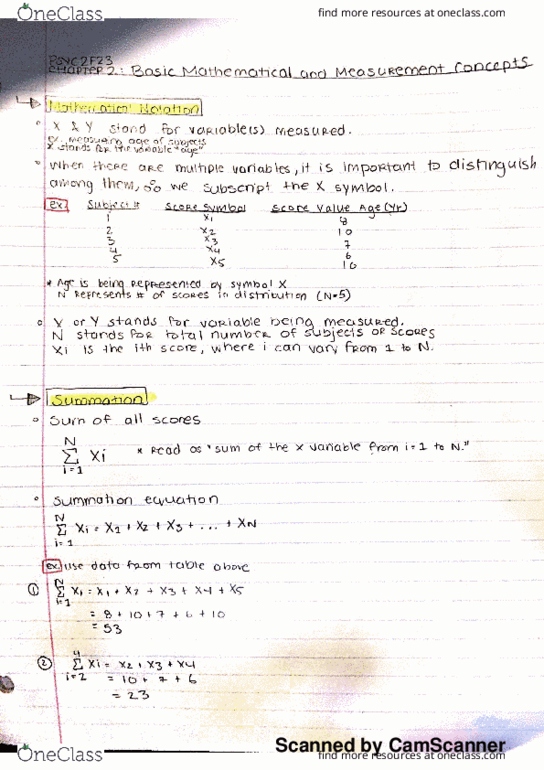 OneClass
find more resources at oneclass.com
PSYC2F23
CHAPTER 2: Basic Mathematical and Measurement Concepts
Mathematical Notation
X & Y stand for variable(s) measured.
ex. measuring age of subjects
X stands for the variable "age"
When there are multiple variables, it is important to distinguish
among them, ∴ we subscript the X symbol.
ex Subject # Score Symbol Score Value Age (Yr)
1 X1 8
2 X2 10
3 X3 7
4 X4 6
5 X5 10
* Age is being represented by symbol X
N represents # of scores in distribution (N=5)
X or Y stands for variable being measured.
N stands for total number of subjects or scores
Xi is the ith score, where i can vary from 1 to N.
Summation
Sum of all scores
N
Σ Xi * Read as "sum of the x variable from i=1 to N."
i=1
Summation equation
N
Σ Xi = X1 + X2 + X3 + ... + XN
i=1
ex: use data from table above
N
① Σ Xi = X1 + X2 + X3 + X4 + X5
i=1
= 8 + 10 + 7 + 6 + 10
= 53
4
② Σ Xi = X2 + X3 + X4
i=2 = 10 + 7 + 6
= 23
Scanned by CamScanner
OneClass
find more resources at oneclass.com